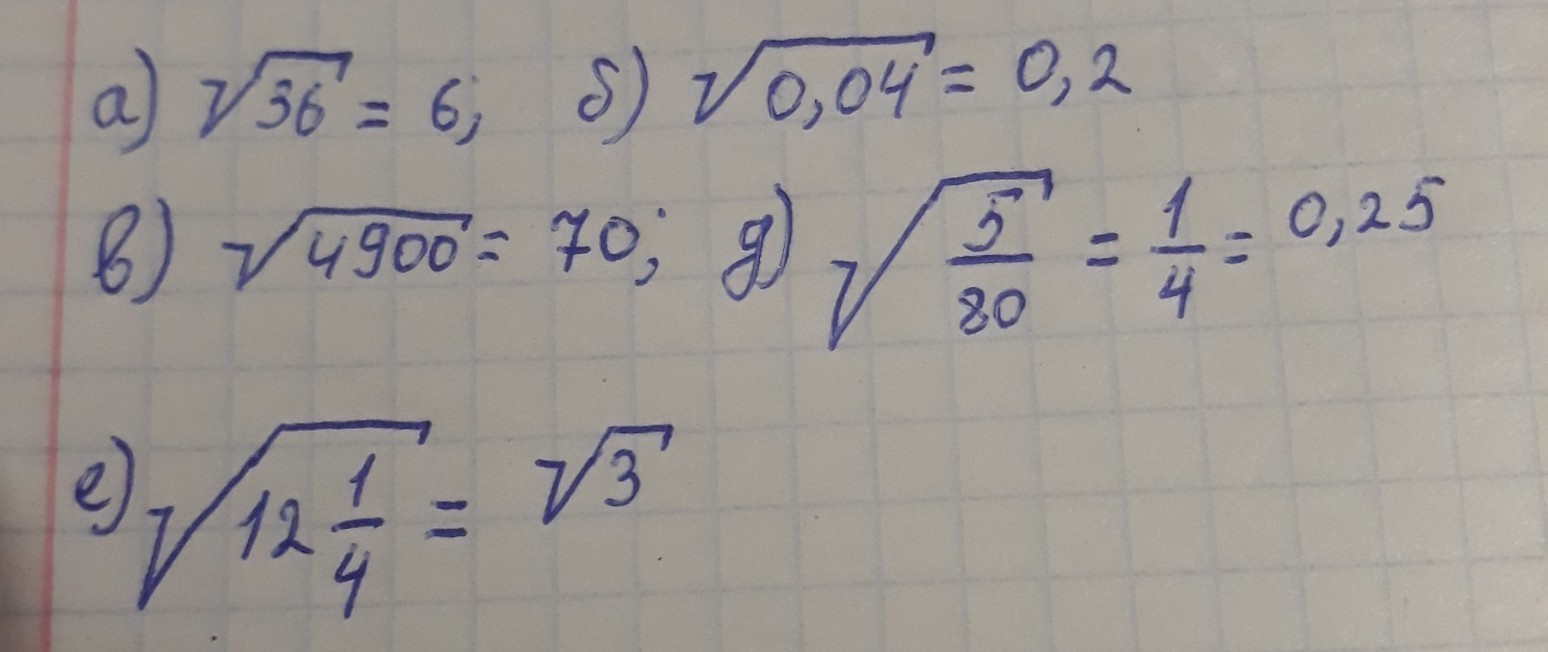 а) √36 = 6; б) √0,04 = 0,2
в) √4900 = 70; д) √(5/80) = 1/4 = 0,25
е) √(12 1/4) = √3